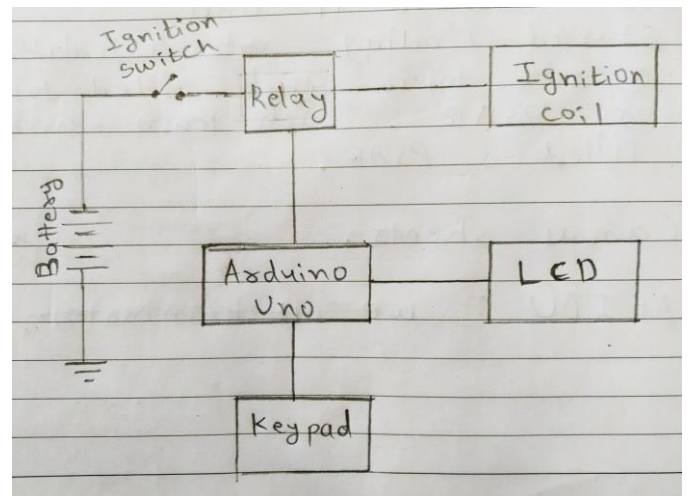 Ignition
switch
Relay
Ignition
coil
Battery
Arduino
Uno
LCD
Keypad